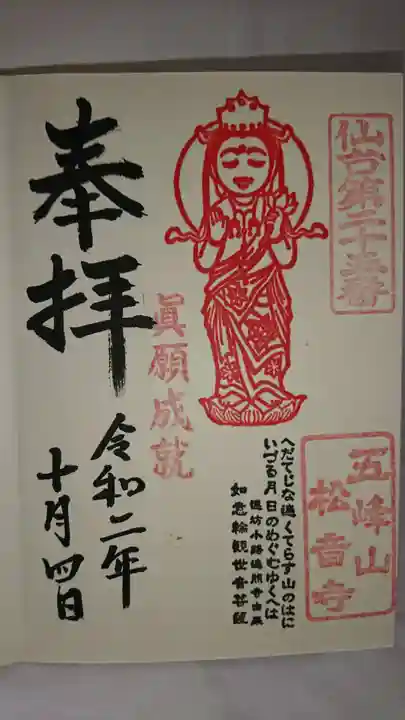 仙台第二十五番
五峰山
松音寺
へだてじな遍くてらす山のはに
いづる月日のめぐむゆくへは
連坊小路遍照寺由来
如意輪観世音菩薩
眞願成就
奉拝
令和二年
十月四日